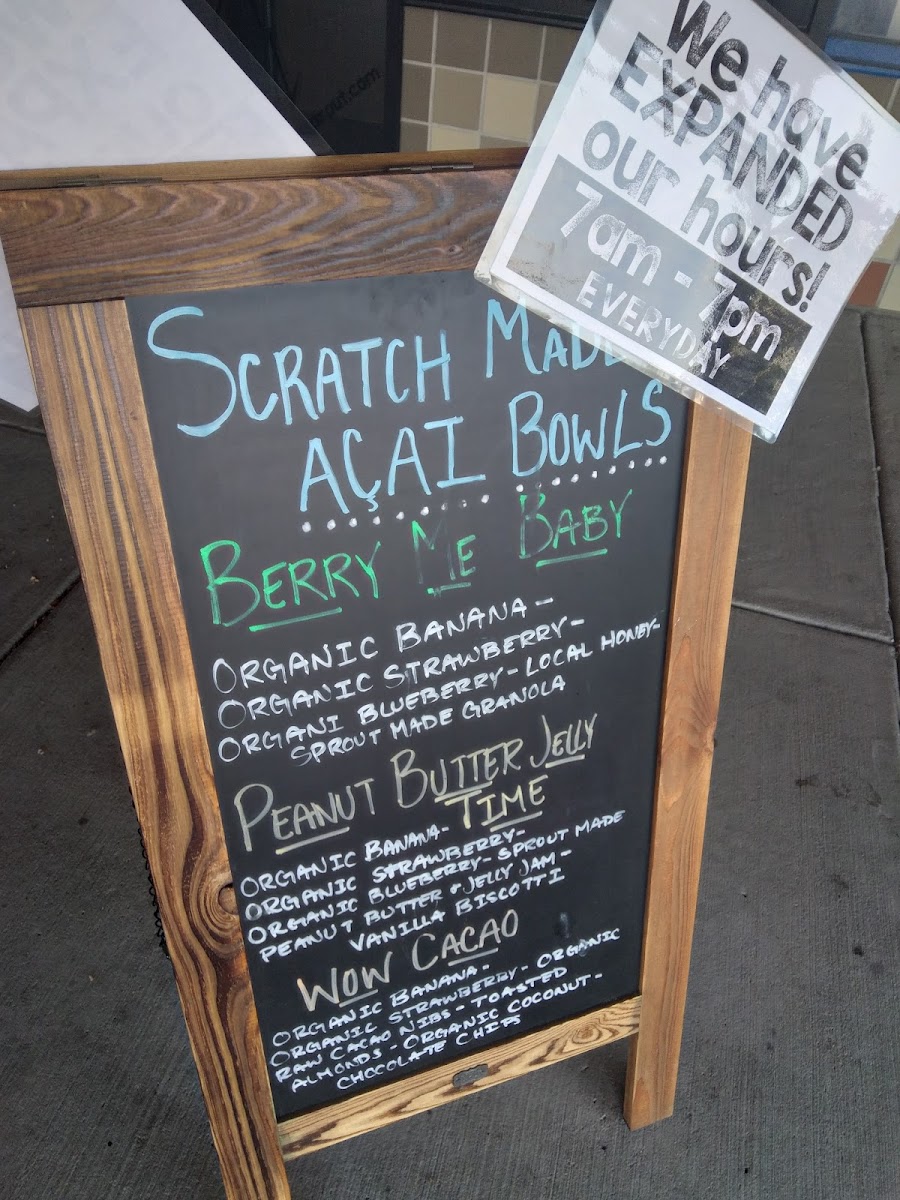 We have
EXPANDED
our hours!
7am - 7pm
EVERYDAY
SCRATCH MADE
AÇAI BOWLS
BERRY ME BABY
ORGANIC BANANA-
ORGANIC STRAWBERRY-
ORGANI BLUEBERRY- LOCAL HONEY-
SPROUT MADE GRANOLA
PEANUT BUTTER JELLY
TIME
ORGANIC BANANA-
ORGANIC STRAWBERRY-
ORGANIC BLUEBERRY- SPROUT MADE
PEANUT BUTTER & JELLY JAM-
VANILLA BISCOTTI
WOW CACAO
ORGANIC BANANA-
ORGANIC STRAWBERRY- ORGANIC
RAW CACAO NIBS- TOASTED
ALMONDS- ORGANIC COCONUT-
CHOCOLATE CHIPS